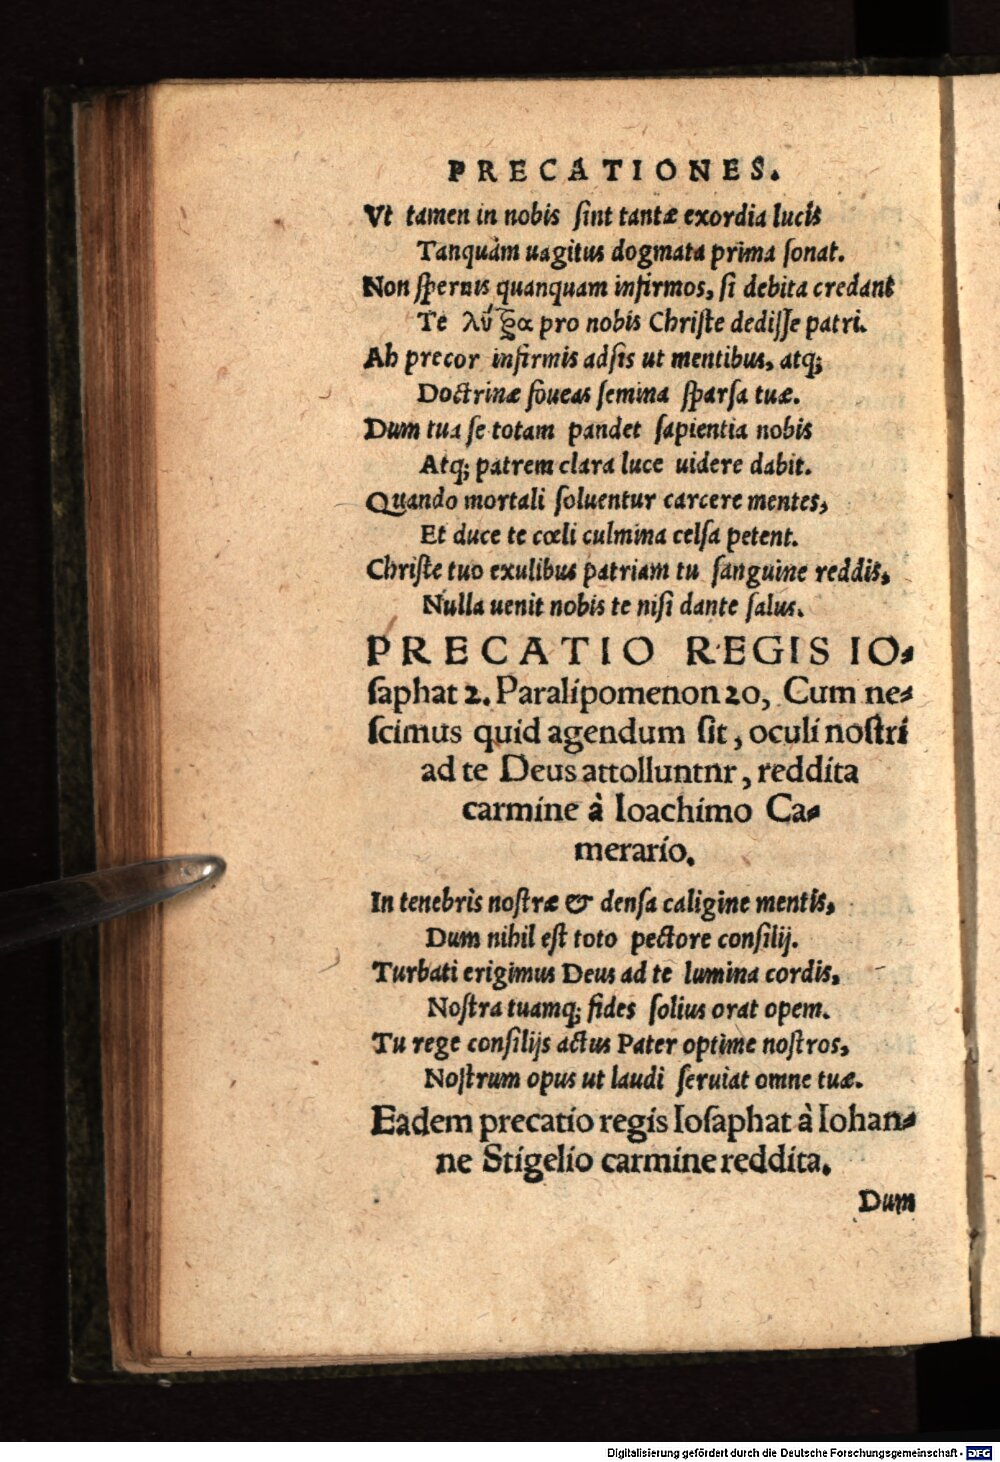 PRECATIONES.
Vt tamen in nobis ſint tantæ exordia lucis
Tanquàm uagitus dogmata prima ſonat.
Non ſpernis quanquam infirmos, ſi debita credant
Te λύτρα pro nobis Chriſte dediſſe patri.
Ah precor infirmis adſis ut mentibus, atq;
Doctrinæ foueas ſemina ſparſa tuæ.
Dum tua ſe totam pandet ſapientia nobis
Atq; patrem clara luce uidere dabit.
Quando mortali ſoluentur carcere mentes,
Et duce te cœli culmina celſa petent.
Chriſte tuo exulibus patriam tu ſanguine reddis,
Nulla uenit nobis te niſi dante ſalus.
PRECATIO REGIS IO-
ſaphat 2. Paralipomenon 20, Cum ne-
ſcimus quid agendum ſit, oculi noſtri
ad te Deus attolluntnr, reddita
carmine à Ioachimo Ca-
merario.
In tenebris noſtræ & denſa caligine mentis,
Dum nihil eſt toto pectore conſilij.
Turbati erigimus Deus ad te lumina cordis,
Noſtra tuamq; fides ſolius orat opem.
Tu rege conſilijs actus Pater optime noſtros,
Noſtrum opus ut laudi ſeruiat omne tuæ.
Eadem precatio regis Ioſaphat à Iohan-
ne Stigelio carmine reddita.
Dum
Digitalisierung gefördert durch die Deutsche Forschungsgemeinschaft - DFG